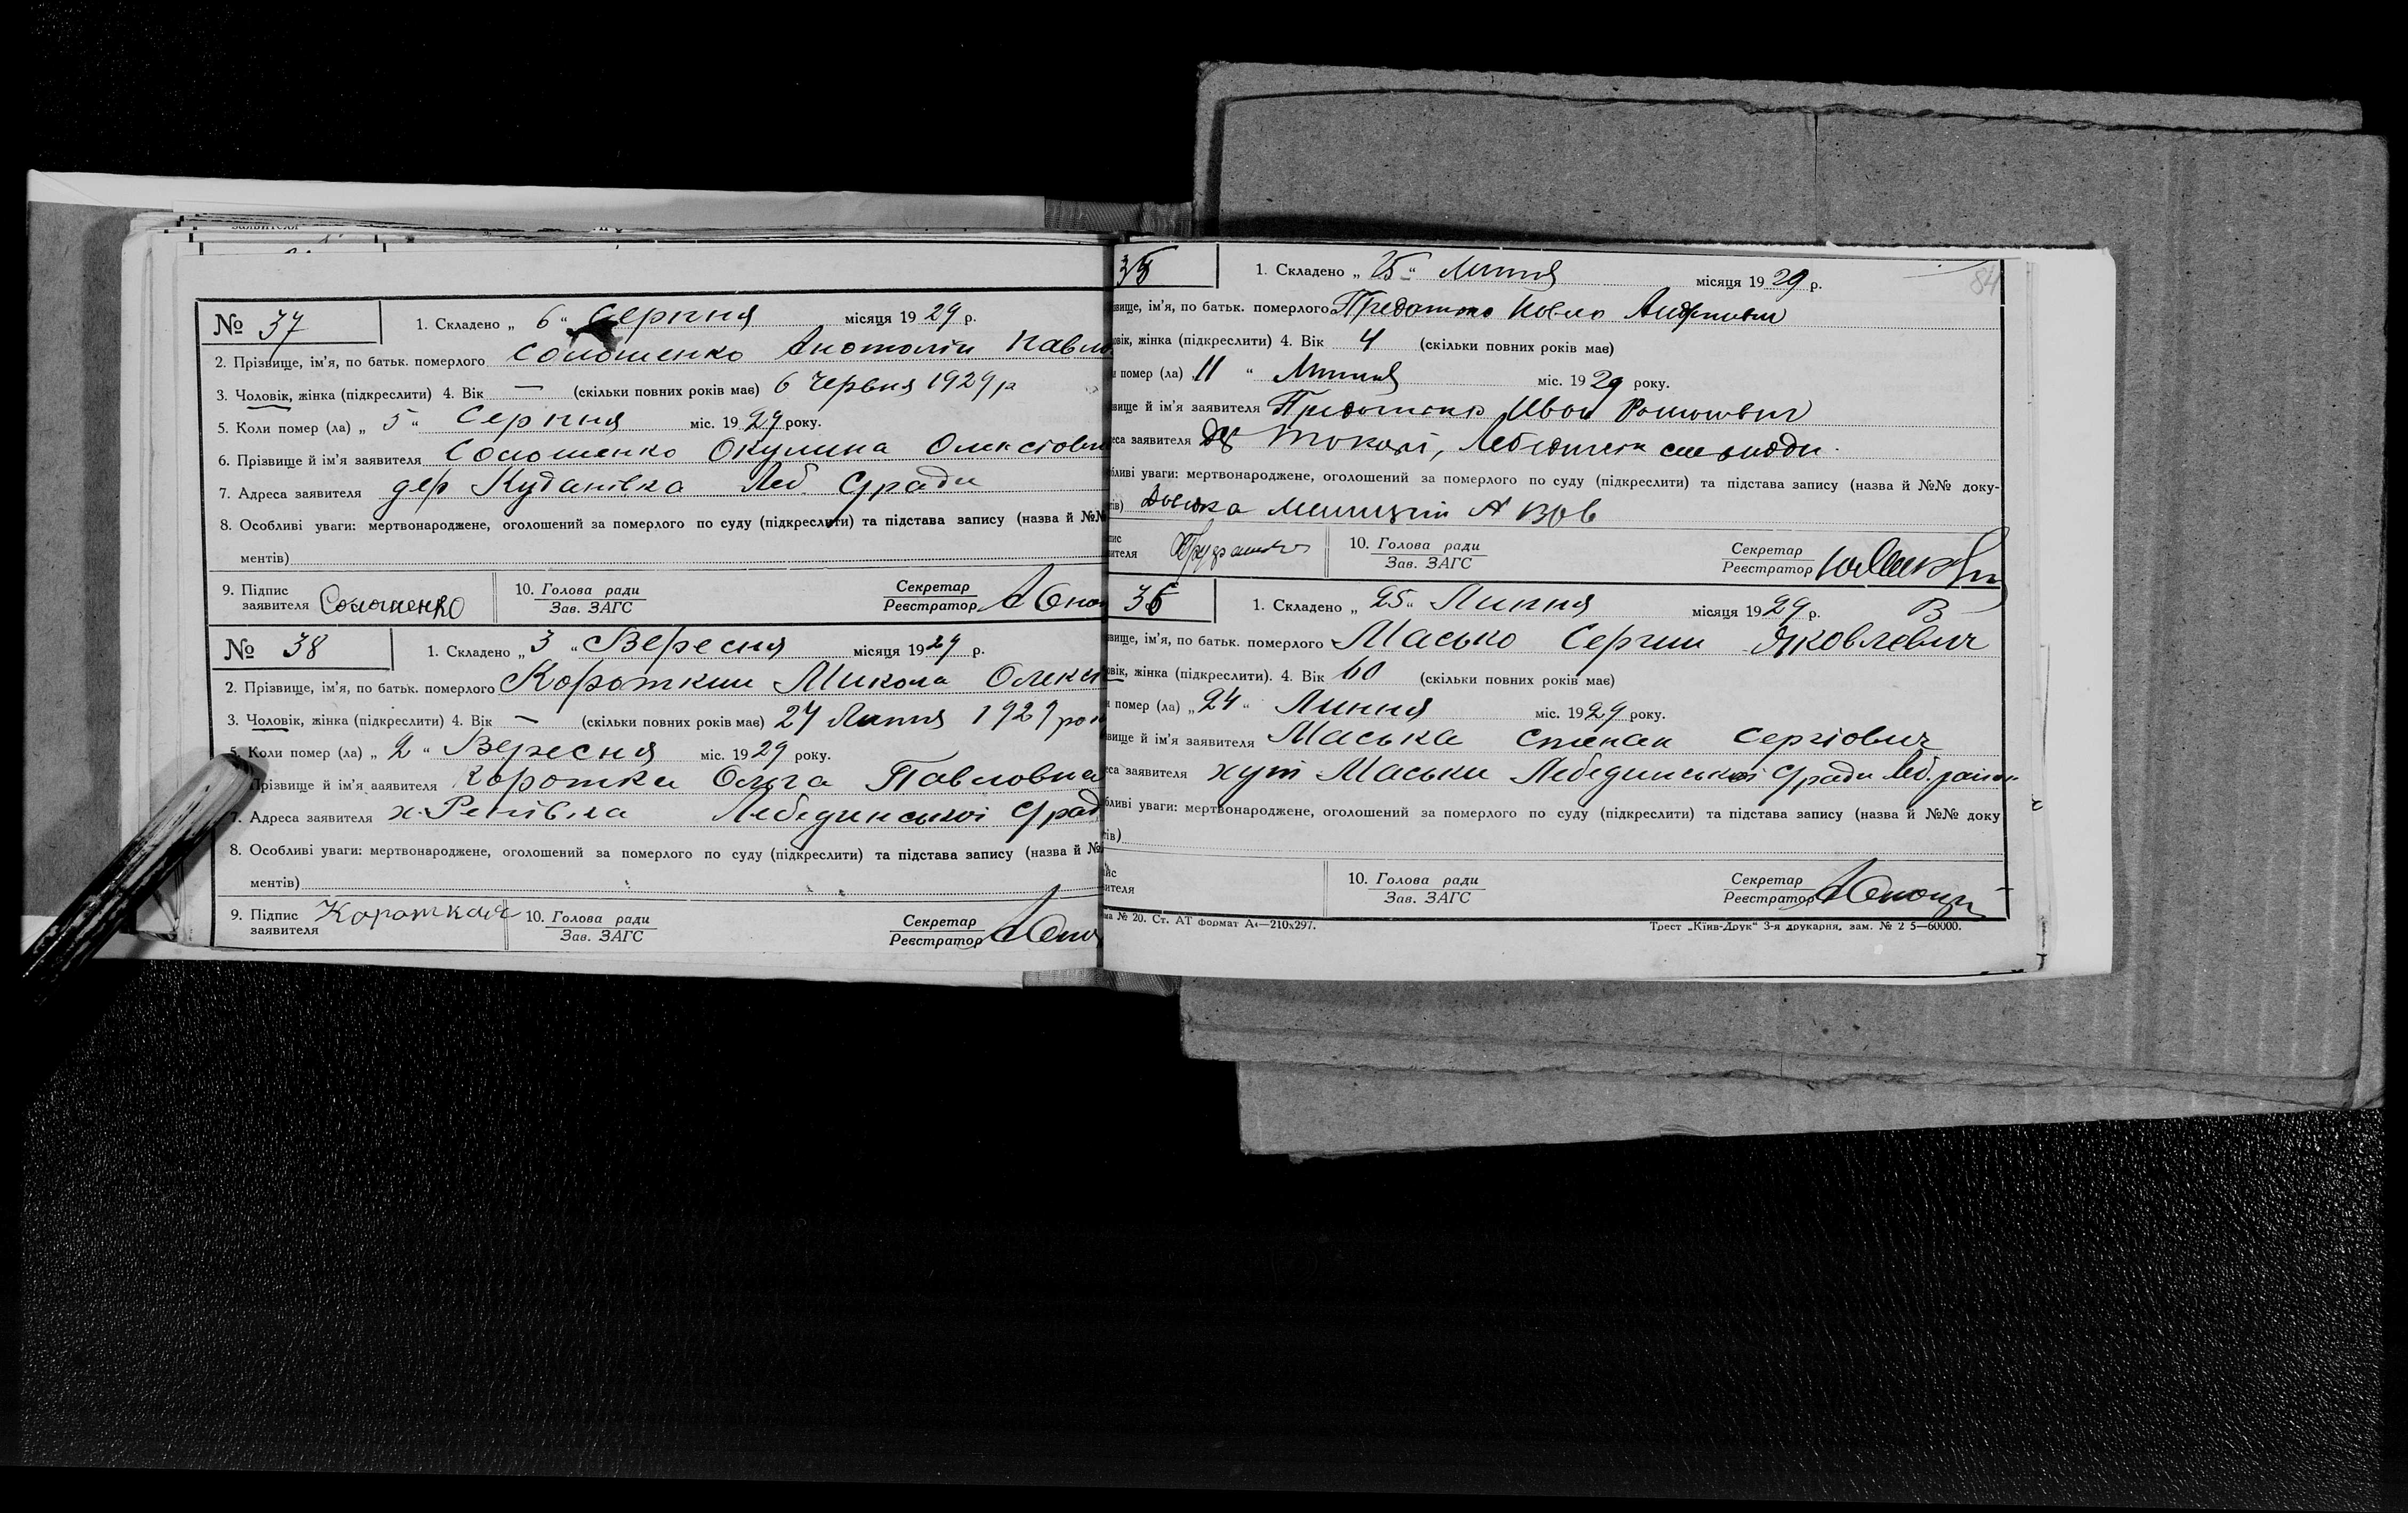 № 37
1. Складено „ 6 “ Серпня місяця 1929 р.
2. Прізвище, ім'я, по батьк. померлого Солошенко Анатолій Павло
3. Чоловік, жінка (підкреслити) 4. Вік — (скільки повних років має) 6 Червня 1929 р
5. Коли помер (ла) „ 5 “ Серпня міс. 1929 року.
6. Прізвище й ім'я заявителя Солошенко Окулина Олексіовн
7. Адреса заявителя дер Кудановка Леб. С/ради
8. Особливі уваги: мертвонароджене, оголошений за померлого по суду (підкреслити) та підстава запису (назва й №№
ментів)
9. Підпис заявителя Солошенко 10. Голова ради Зав. ЗАГС Секретар Реєстратор
№ 38
1. Складено „ 3 “ Вересня місяця 1929 р.
2. Прізвище, ім'я, по батьк. померлого Короткий Микола Олекс
3. Чоловік, жінка (підкреслити) 4. Вік — (скільки повних років має) 27 Липня 1929 рок
5. Коли помер (ла) „ 2 “ Вересня міс. 1929 року.
Прізвище й ім'я заявителя Коротка Ольга Павловна
7. Адреса заявителя х. Репівка Лебединської С/рад
8. Особливі уваги: мертвонароджене, оголошений за померлого по суду (підкреслити) та підстава запису (назва й №
ментів)
9. Підпис заявителя Короткая 10. Голова ради Зав. ЗАГС Секретар Реєстратор
35
84
1. Складено „ 25 “ Липня місяця 1929 р.
вище, ім'я, по батьк. померлого Павло
овік, жінка (підкреслити) 4. Вік 4 (скільки повних років має)
и помер (ла) „ 11 “ Липня міс. 1929 року.
вище й ім'я заявителя Иван
еса заявителя Токарі,
бливі уваги: мертвонароджене, оголошений за померлого по суду (підкреслити) та підстава запису (назва й №№ доку-
тів) Довідка
пис вителя 10. Голова ради Зав. ЗАГС Секретар Реєстратор
36
1. Складено „ 25 “ Липня місяця 1929 р. В
вище, ім'я, по батьк. померлого Масько Сергий Яковлевич
овік, жінка (підкреслити). 4. Вік 60 (скільки повних років має)
и помер (ла) „ 24 “ Липня міс. 1929 року.
вище й ім'я заявителя Маська Степан Сергіович
еса заявителя хут Маськи Лебединської С/ради Леб. район
бливі уваги: мертвонароджене, оголошений за померлого по суду (підкреслити) та підстава запису (назва й №№ доку
тів)
пис вителя 10. Голова ради Зав. ЗАГС Секретар Реєстратор
ма № 20. Ст. АТ формат А4—210х297. Трест „Київ-Друк“ 3-я друкарня, зам. № 2 5—60000.